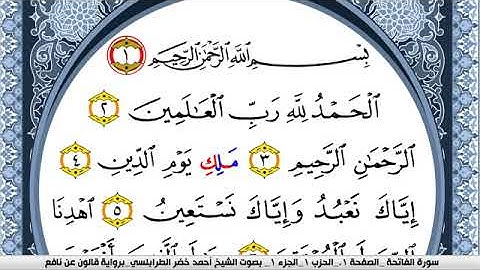 بِسْمِ اللَّهِ الرَّحْمَٰنِ الرَّحِيمِ ١
الْحَمْدُ لِلَّهِ رَبِّ الْعَالَمِينَ ٢
الرَّحْمَٰنِ الرَّحِيمِ ٣ مَلِكِ يَوْمِ الدِّينِ ٤
إِيَّاكَ نَعْبُدُ وَإِيَّاكَ نَسْتَعِينُ ٥ اهْدِنَا
سورة الفاتحة _ الصفحة ١_ الحزب ١_ الجزء ١_ بصوت الشيخ أحمد خضر الطرابلسي_ برواية قالون عن نافع